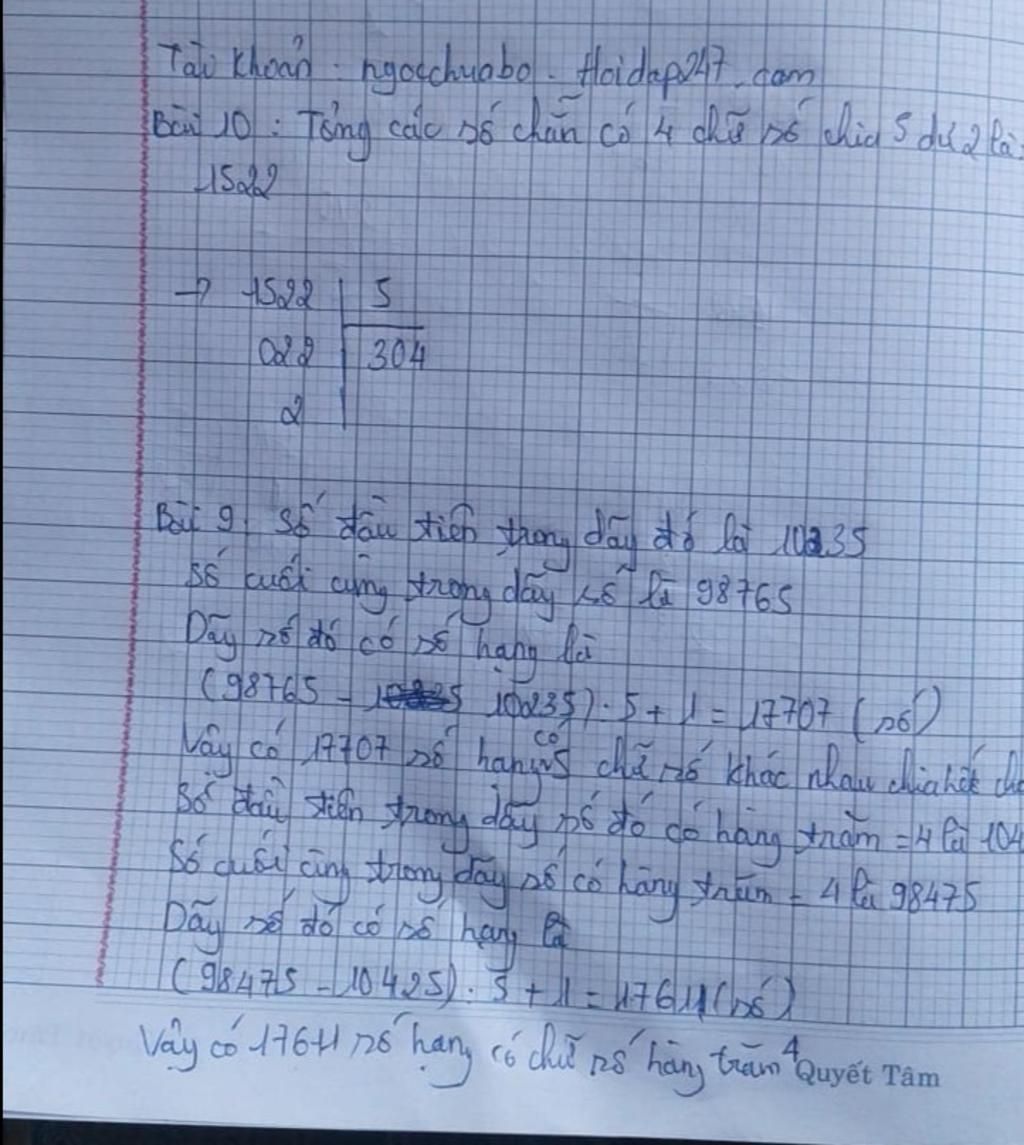 Tài khoản : ngocchuabo - Hoidap247.com
Bài 10 : Tổng các số chẵn có 4 chữ số chia 5 dư 2 là:
1522
→ 1522 | 5
022 | 304
2
Bài 9 Số đầu tiên trong dãy đó là 10235
Số cuối cùng trong dãy số là 98765
Dãy số đó có số hạng là
(98765 - 10235) : 5 + 1 = 17707 (số)
Vậy có 17707 số hạng có 5 chữ số khác nhau chia hết ch
Số đầu tiên trong dãy số đó có hàng trăm = 4 là 104
Số cuối cùng trong dãy số có hàng trăm = 4 là 98475
Dãy số đó có số hạng là
(98475 - 10425) : 5 + 1 = 17611 (số)
Vậy có 17611 số hạng có chữ số hàng trăm 4
Quyết Tâm